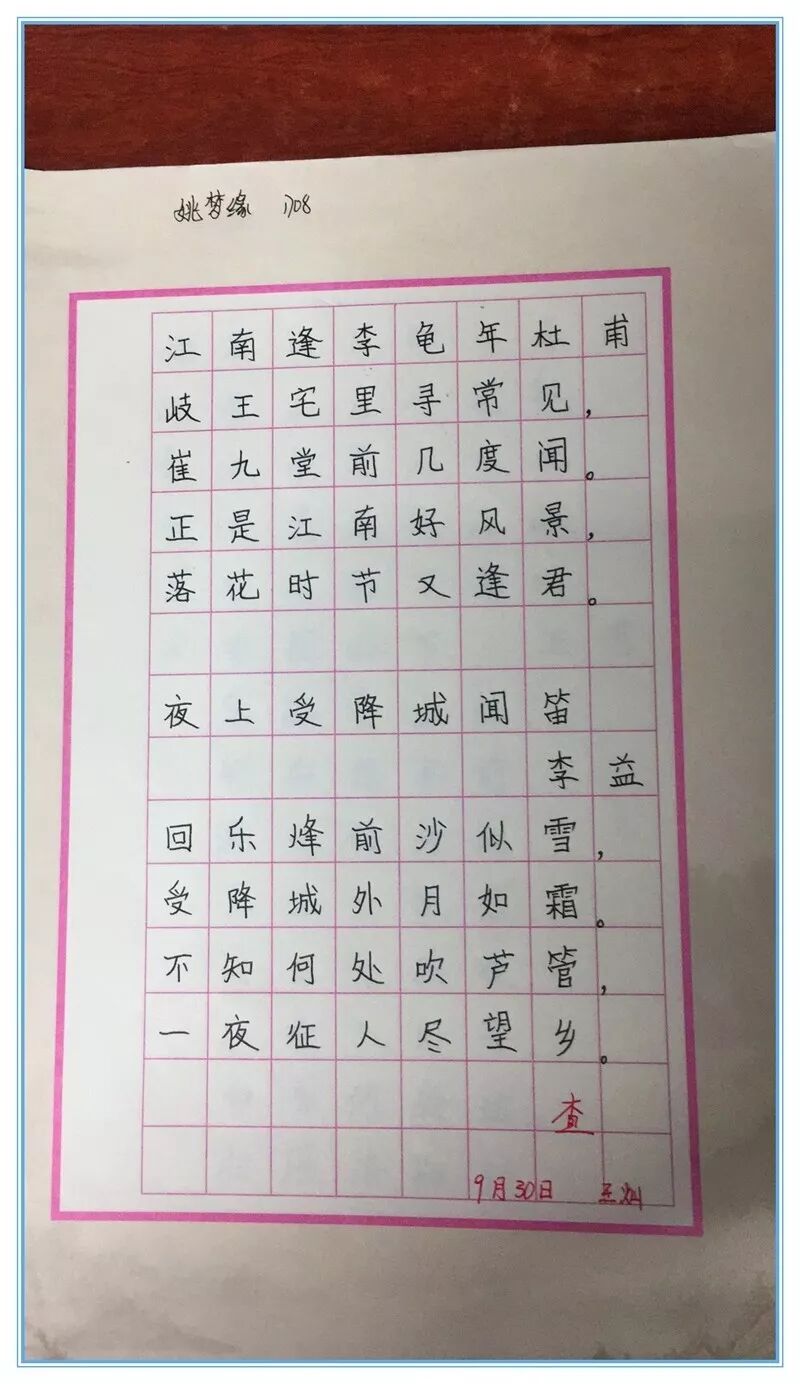 姚梦缘 1708
江南逢李龟年杜甫
岐王宅里寻常见，
崔九堂前几度闻。
正是江南好风景，
落花时节又逢君。
夜上受降城闻笛
李益
回乐烽前沙似雪，
受降城外月如霜。
不知何处吹芦管，
一夜征人尽望乡。
查
9月30日